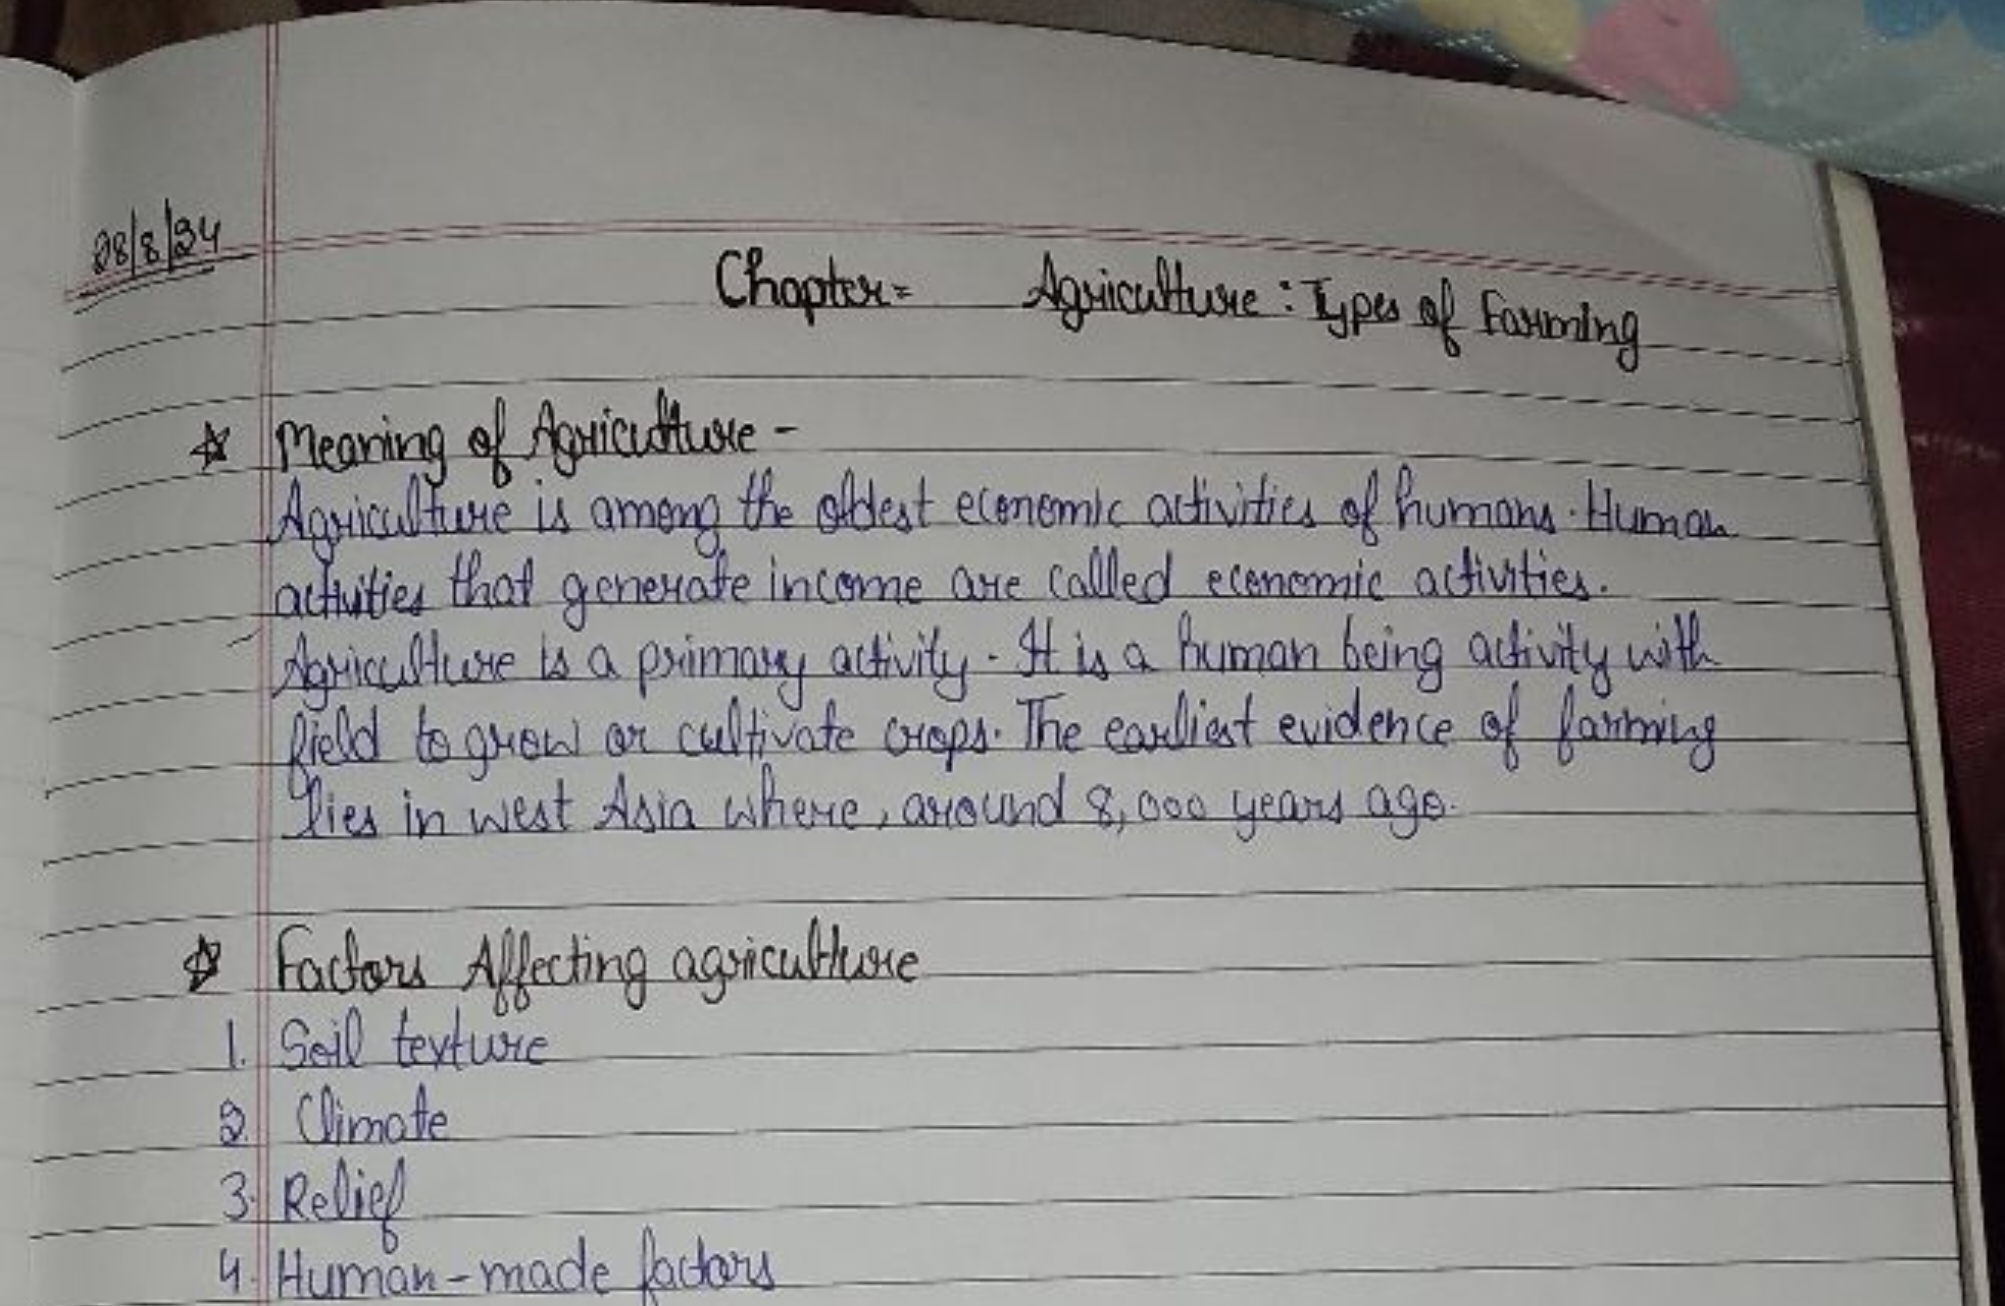 28/8/24
Chapter= Agriculture : Types of Farming
☆ Meaning of Agriculture -
Agriculture is among the oldest economic activities of humans. Human
activities that generate income are called economic activities.
Agriculture is a primary activity. It is a human being activity with
field to grow or cultivate crops. The earliest evidence of farming
lies in west Asia where, around 8,000 years ago.
☆ Factors Affecting agriculture
1. Soil texture
2. Climate
3. Relief
4. Human-made factors